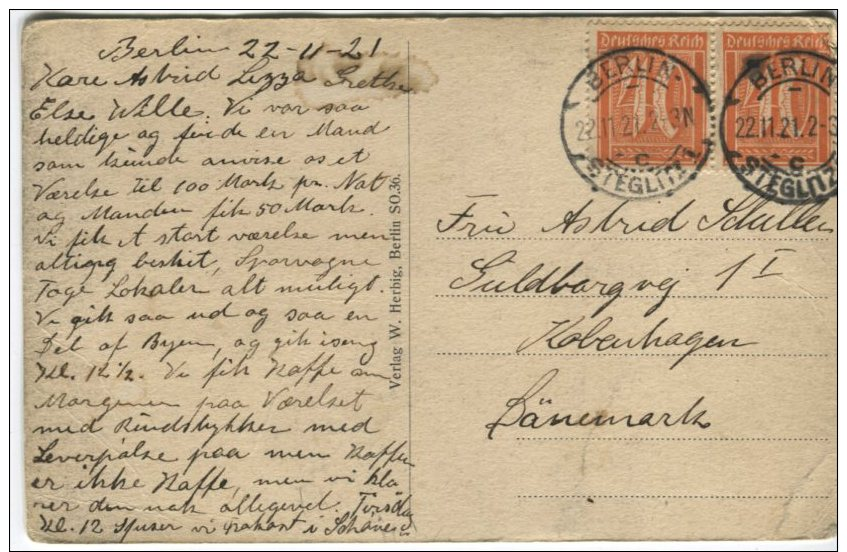 Berlin 22-11-21
Kære Astrid Lizza Grethe
Else Wille. Vi var saa
heldige og finde en Mand
som kunde anvise os et
Værelse til 100 Mark pr. Nat
og Manden fik 50 Mark.
Vi fik et stort værelse men
alting beskit, Sporvogne
Toge Lokaler alt muligt.
Vi gik saa ud og saa en
Del af Byen, og gik iseng
Kl. 12½. Vi fik Kaffe om
Morgenen paa Værelset
med Rundstykker med
Leverpølse paa men Kaffen
er ikke Kaffe, men vi kla
rer den nok alligevel. Tirsdag
Kl. 12 spiser vi Frokost i
Verlag W. Herbig, Berlin SO.36.
Deutsches Reich
Deutsches Reich
40
40
BERLIN-
22.11.21. 2-3N
c
STEGLITZ 1
BERLIN-
22.11.21. 2-3
c
STEGLITZ
Fru Astrid
Guldborgvej 1 I
Kobenhagen
Dänemark